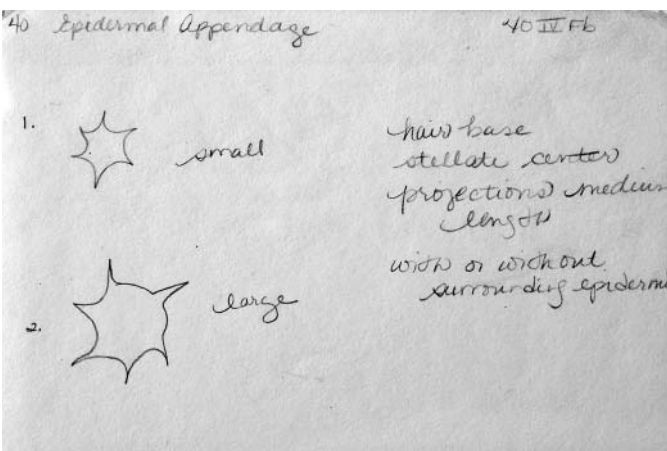 40 Epidermal Appendage 40 IV Fb
1. small
hair base
stellate center
projections medium
length
with or without
surrounding epiderm
2. large